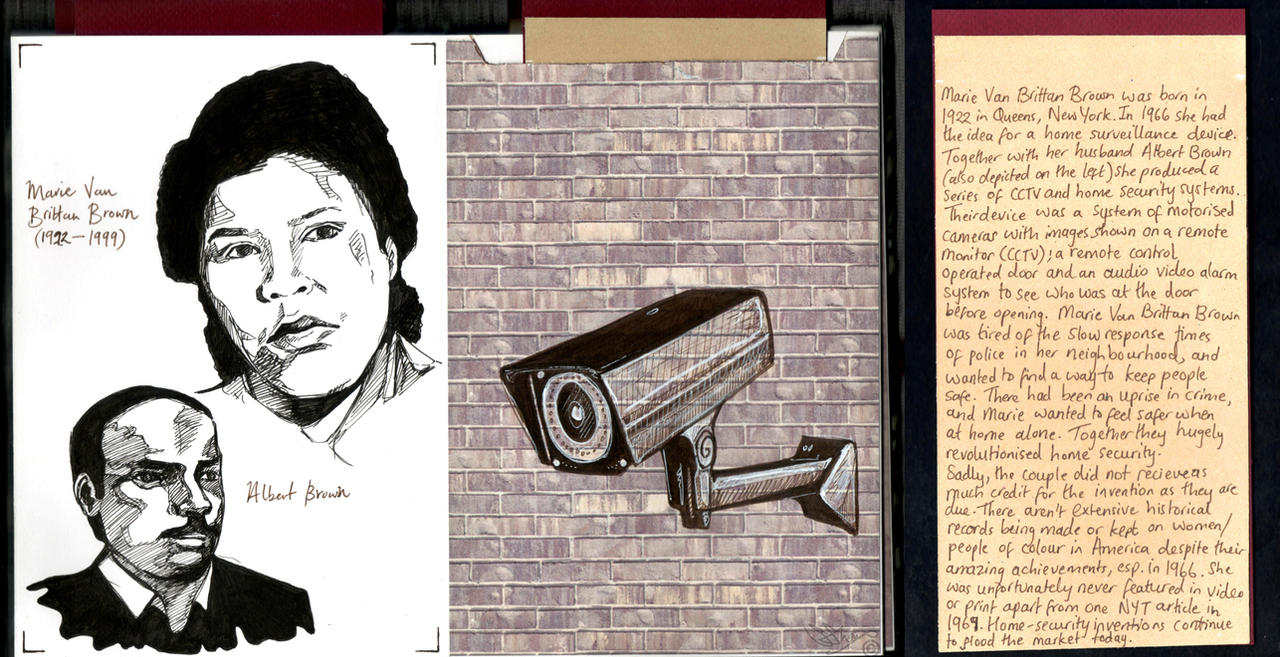 Marie Van
Brittan Brown
(1922—1999)
Albert Brown
Marie Van Brittan Brown was born in
1922 in Queens, New York. In 1966 she had
the idea for a home surveillance device.
Together with her husband Albert Brown
(also depicted on the left) she produced a
series of CCTV and home security systems.
Their device was a system of motorised
cameras with images shown on a remote
monitor (CCTV); a remote control
operated door and an audio video alarm
system to see who was at the door
before opening. Marie Van Brittan Brown
was tired of the slow response times
of police in her neighbourhood, and
wanted to find a way to keep people
safe. There had been an uprise in crime,
and Marie wanted to feel safer when
at home alone. Together they hugely
revolutionised home security.
Sadly, the couple did not recieve as
much credit for the invention as they are
due. There aren't extensive historical
records being made or kept on women/
people of colour in America despite their
amazing achievements, esp. in 1966. She
was unfortunately never featured in video
or print apart from one NYT article in
1969. Home-security inventions continue
to flood the market today.
©